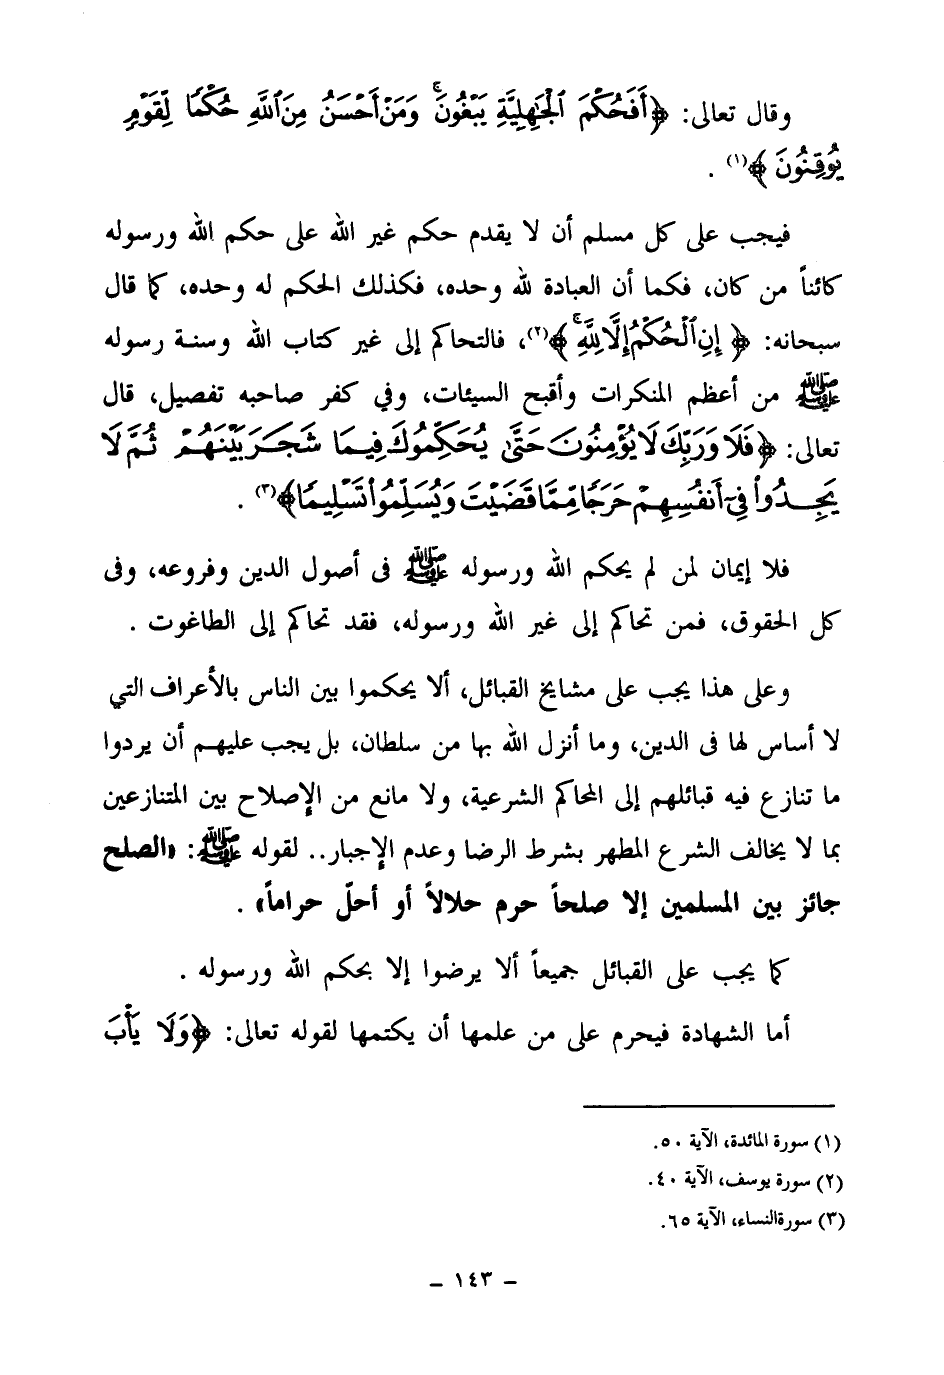 وقال تعالى: ﴿أَفَحُكْمَ ٱلْجَٰهِلِيَّةِ يَبْغُونَ ۚ وَمَنْ أَحْسَنُ مِنَ ٱللَّهِ حُكْمًا لِّقَوْمٍ
يُوقِنُونَ﴾(١) .
فيجب على كل مسلم أن لا يقدم حكم غير الله على حكم الله ورسوله
كائناً من كان، فكما أن العبادة لله وحده، فكذلك الحكم له وحده، كما قال
سبحانه: ﴿إِنِ ٱلْحُكْمُ إِلَّا لِلَّهِ ۚ﴾(٢)، فالتحاكم إلى غير كتاب الله وسنة رسوله
ﷺ من أعظم المنكرات وأقبح السيئات، وفي كفر صاحبه تفصيل، قال
تعالى: ﴿فَلَا وَرَبِّكَ لَا يُؤْمِنُونَ حَتَّىٰ يُحَكِّمُوكَ فِيمَا شَجَرَ بَيْنَهُمْ ثُمَّ لَا
يَجِدُواْ فِىٓ أَنفُسِهِمْ حَرَجًا مِّمَّا قَضَيْتَ وَيُسَلِّمُواْ تَسْلِيمًا﴾(٣) .
فلا إيمان لمن لم يحكم الله ورسوله ﷺ فى أصول الدين وفروعه، وفى
كل الحقوق، فمن تحاكم إلى غير الله ورسوله، فقد تحاكم إلى الطاغوت .
وعلى هذا يجب على مشايخ القبائل، ألا يحكموا بين الناس بالأعراف التي
لا أساس لها فى الدين، وما أنزل الله بها من سلطان، بل يجب عليهم أن يردوا
ما تنازع فيه قبائلهم إلى المحاكم الشرعية، ولا مانع من الإصلاح بين المتنازعين
بما لا يخالف الشرع المطهر بشرط الرضا وعدم الإجبار.. لقوله ﷺ: «الصلح
جائز بين المسلمين إلا صلحاً حرم حلالاً أو أحلّ حراماً» .
كما يجب على القبائل جميعاً ألا يرضوا إلا بحكم الله ورسوله .
أما الشهادة فيحرم على من علمها أن يكتمها لقوله تعالى: ﴿وَلَا يَأْبَ
(١) سورة المائدة، الآية ٥٠.
(٢) سورة يوسف، الآية ٤٠.
(٣) سورة النساء، الآية ٦٥.
– ١٤٣ –